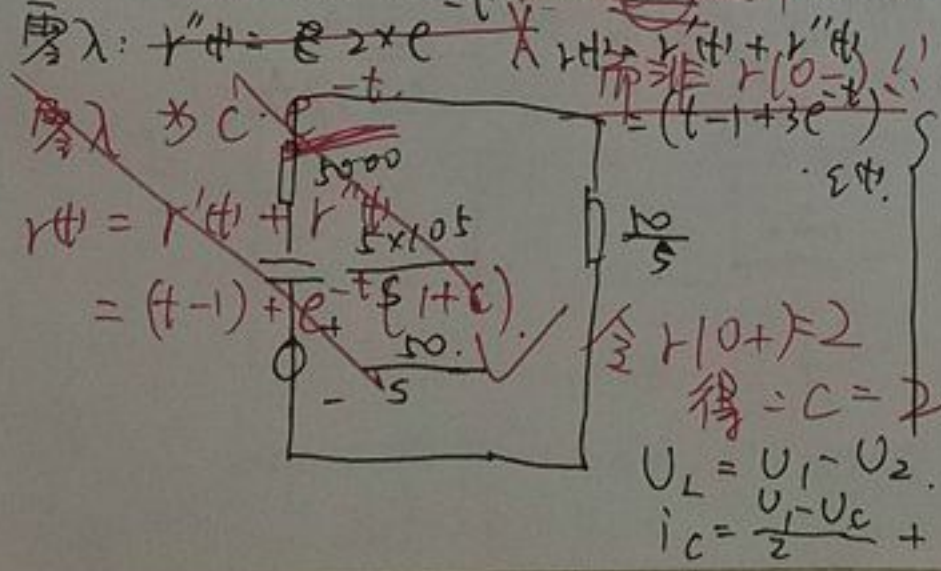 零入: r''(t) = e 2×e^{-t}
r(t) = r'(t) + r''(t)
而非 r(0-)!!
= (t-1+3e^{-t})
ε(t).
零入 为 C·e^{-t}
5000
r(t) = r'(t) + r''(t)
5×10^5 / s
50 / s
= (t-1) + e^{-t}(1+c).
50 / s
令 r(0+)=2
得: C = 2
U_L = U_1 - U_2.
i_C = (U_1-U_C)/2 +